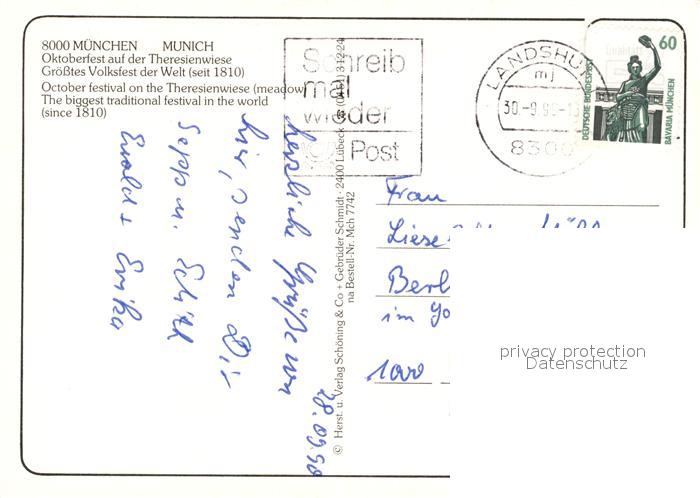 8000 MÜNCHEN MUNICH
Oktoberfest auf der Theresienwiese
Größtes Volksfest der Welt (seit 1810)
October festival on the Theresienwiese (meadow)
The biggest traditional festival in the world
(since 1810)
Schreib
mal
wieder
Post
LANDSHUT
mj
30.-9.90-1
8300
60
DEUTSCHE BUNDESPOST
BAVARIA MÜNCHEN
© Herst. u. Verlag Schöning & Co + Gebrüder Schmidt · 2400 Lübeck ☎ (0451) 31224
na Bestell-Nr. Mch 7742
28.09.90
herzliche Grüße von
hier, senden Dir
Sepp u. Edith
Ewald + Erika
Frau
Liese
Berl
im Go
1000
privacy protection
Datenschutz